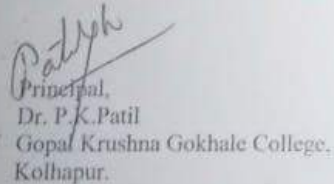 Patil
Principal,
Dr. P.K.Patil
Gopal Krushna Gokhale College,
Kolhapur.